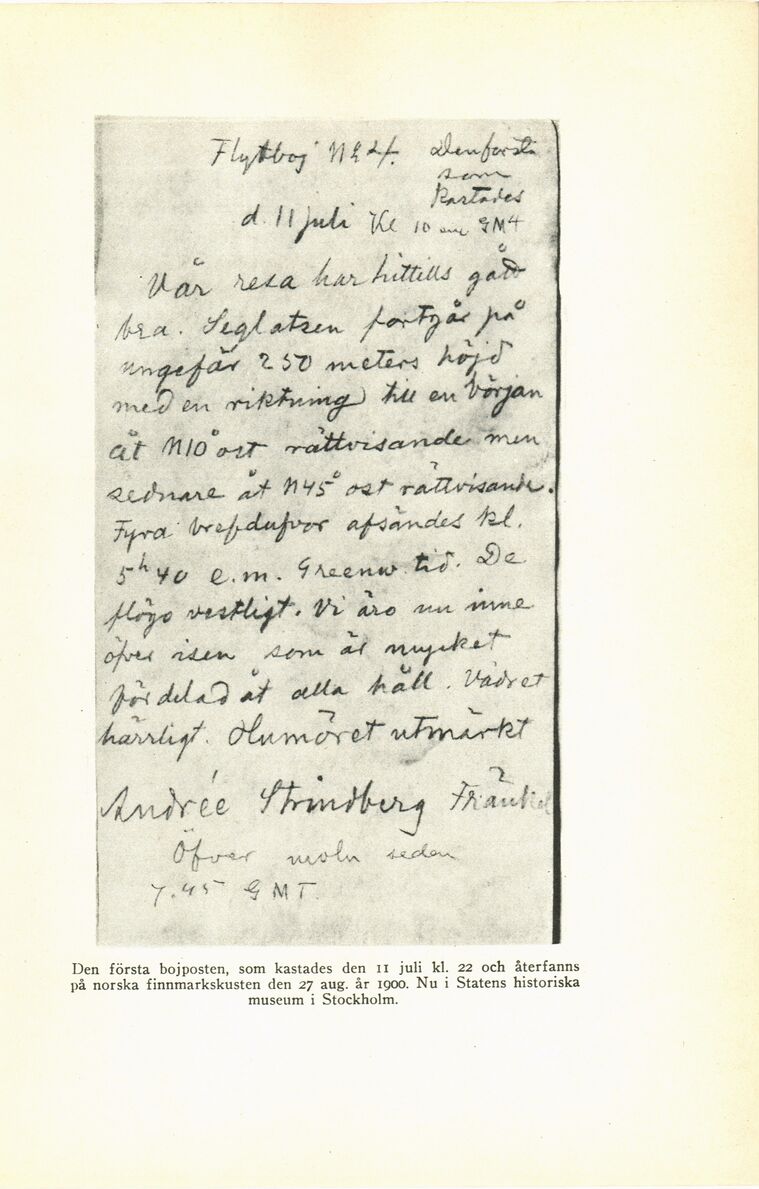 Flytboj No 4. Den första
som
kastades
d. 11 juli Kl 10 em GMT
Vår resa har hittills gått
bra. Seglatsen fortgår på
ungefär 250 meters höjd
med en riktning till en början
åt N10° ost rättvisande men
sednare åt N45° ost rättvisande.
Fyra brefdufvor afsändes kl.
5h 40 e.m. Greenw. tid. De
flögo vestligt. Vi äro nu inne
öfver isen som är mycket
fördelad åt alla håll. Vädret
härrligt. Humöret utmärkt
Andrée Strindberg Frænkel
Öfver moln sedan
7.45 GMT.
Den första bojposten, som kastades den 11 juli kl. 22 och återfanns
på norska finnmarkskusten den 27 aug. år 1900. Nu i Statens historiska
museum i Stockholm.